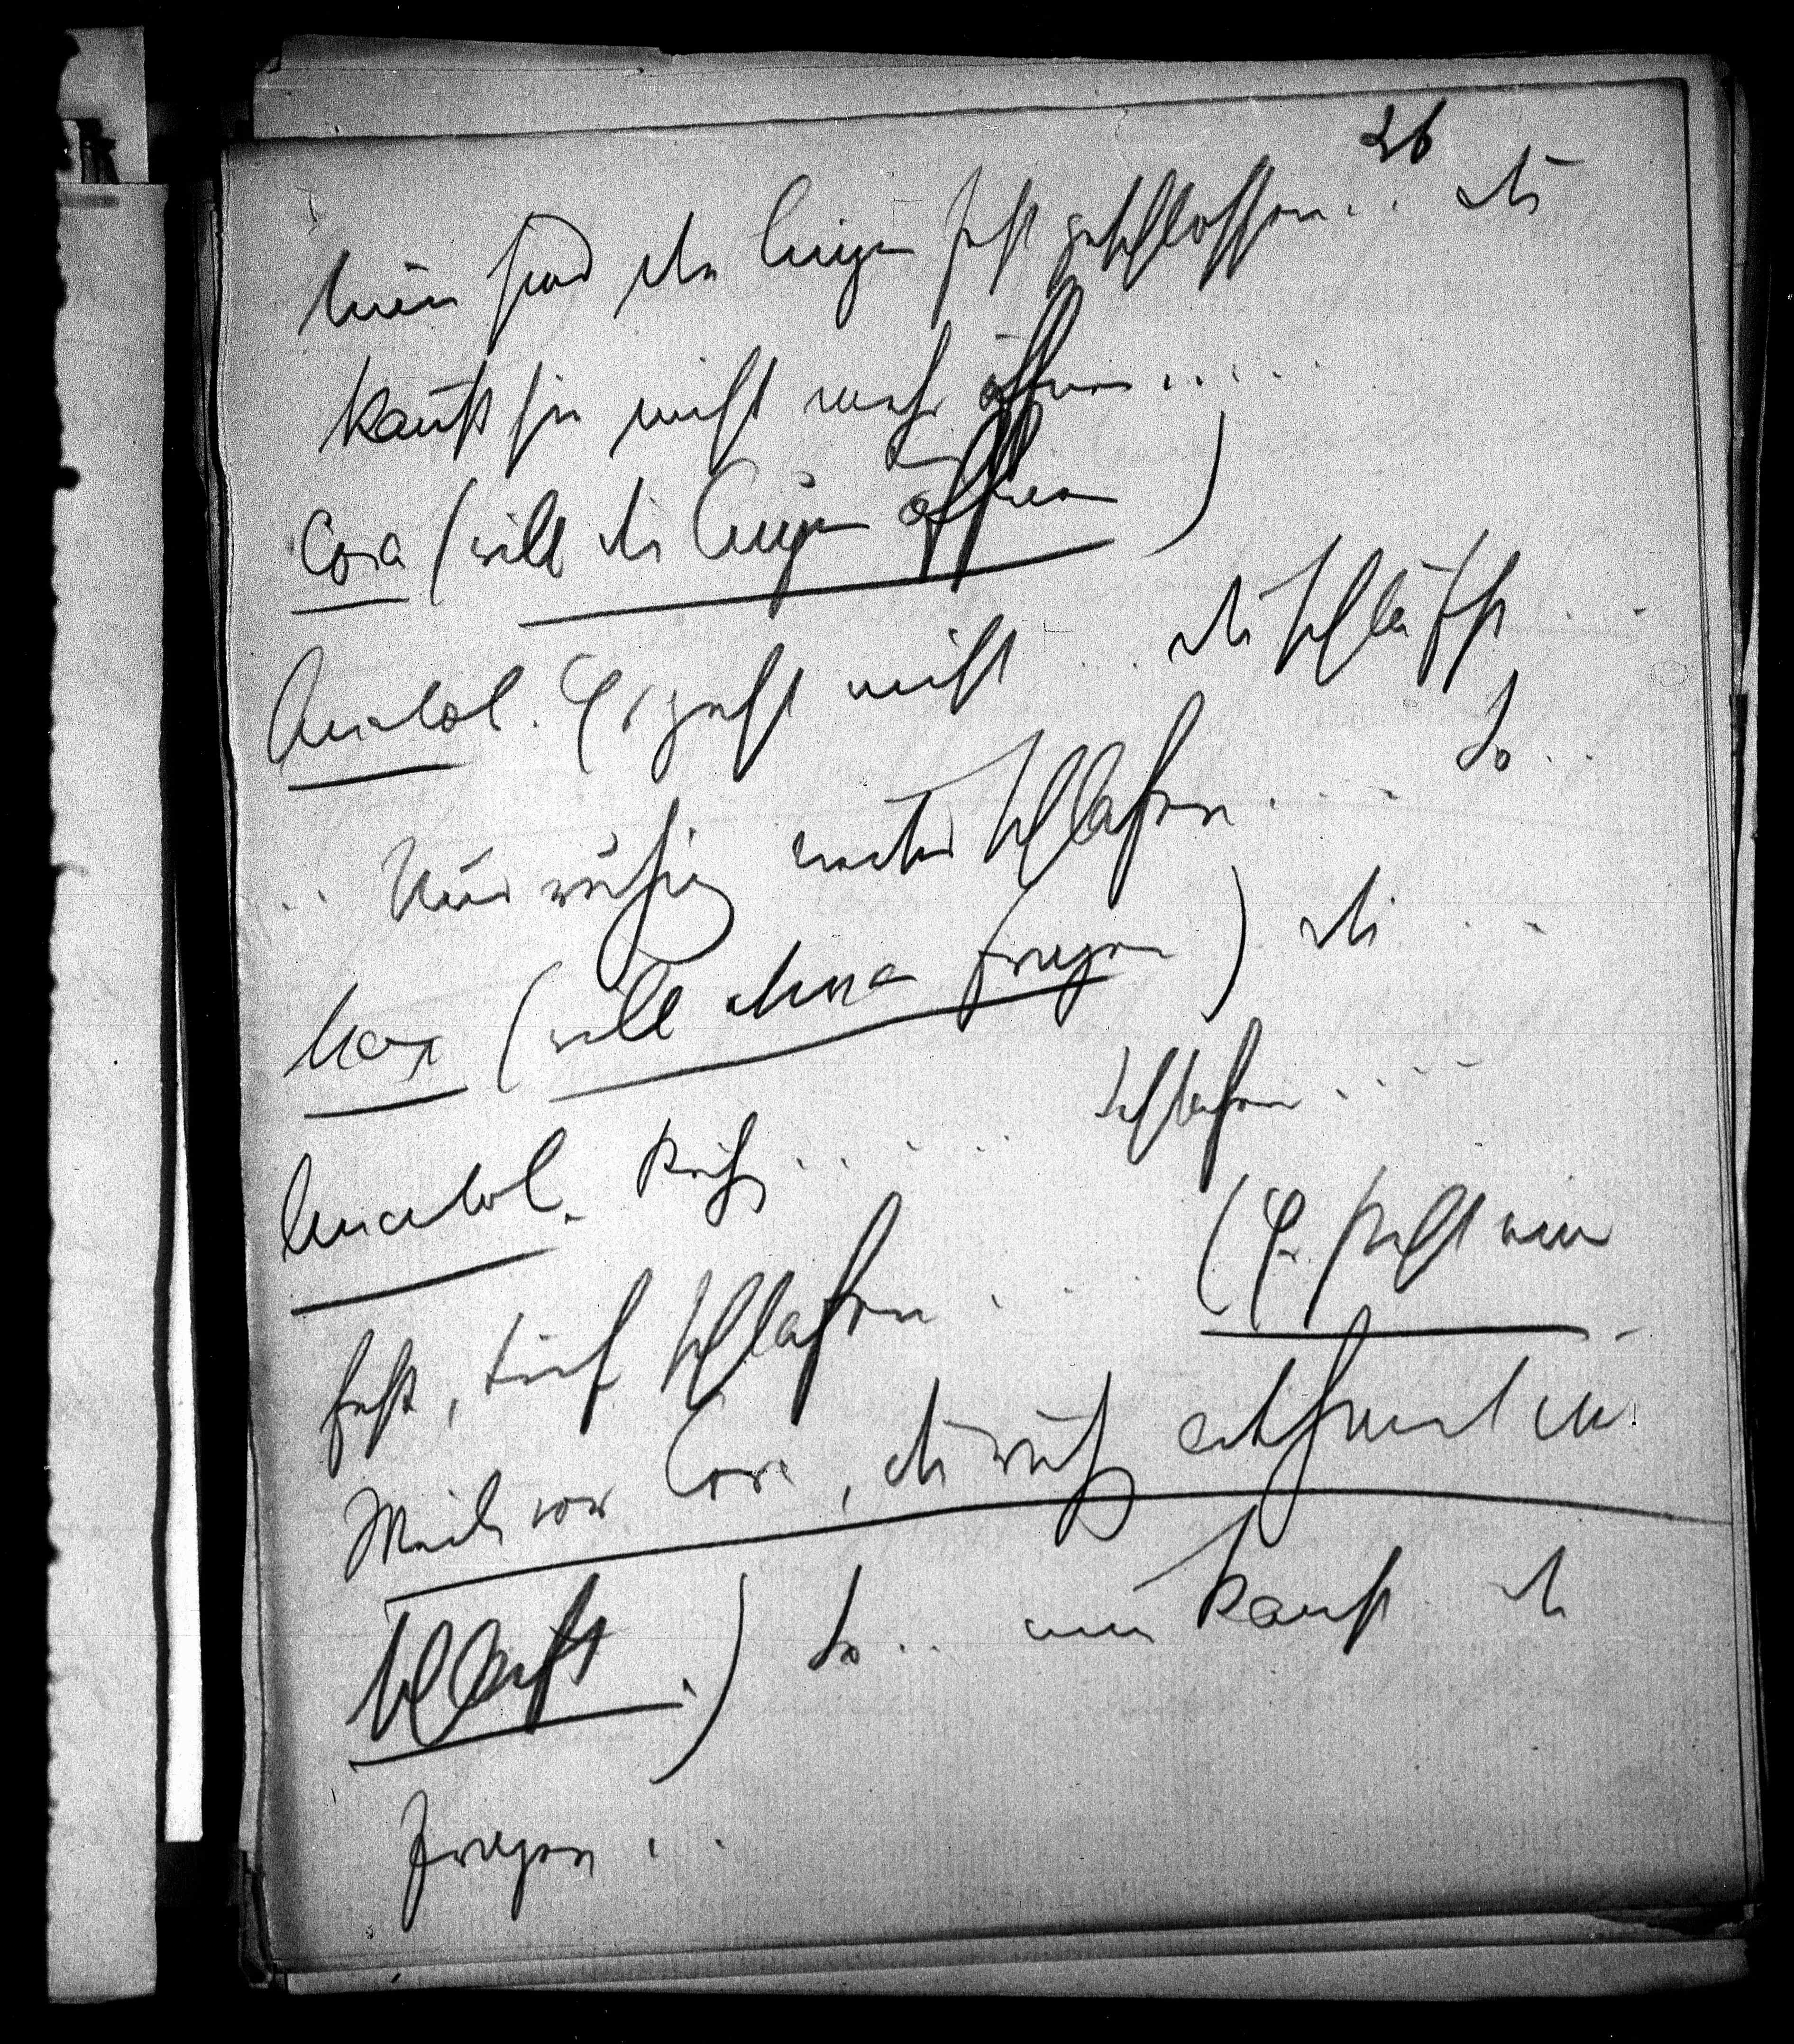 26
Nun sind die Augen fest geschlossen... Du
kannst sie nicht mehr öffnen .....
Cora (will die Augen öffnen)
Anatol. Es geht nicht ... Du schläfst ..
.. Nur ruhig weiter schlafen .... So ..
Max (will etwas fragen) Du ...
Anatol. Ruhig ..... Schlafen ....
fest, tief schlafen ... (Er steht eine
Weile vor Cora, die ruhig athmet u.
schläft.) So .. nun kannst du
fragen ...